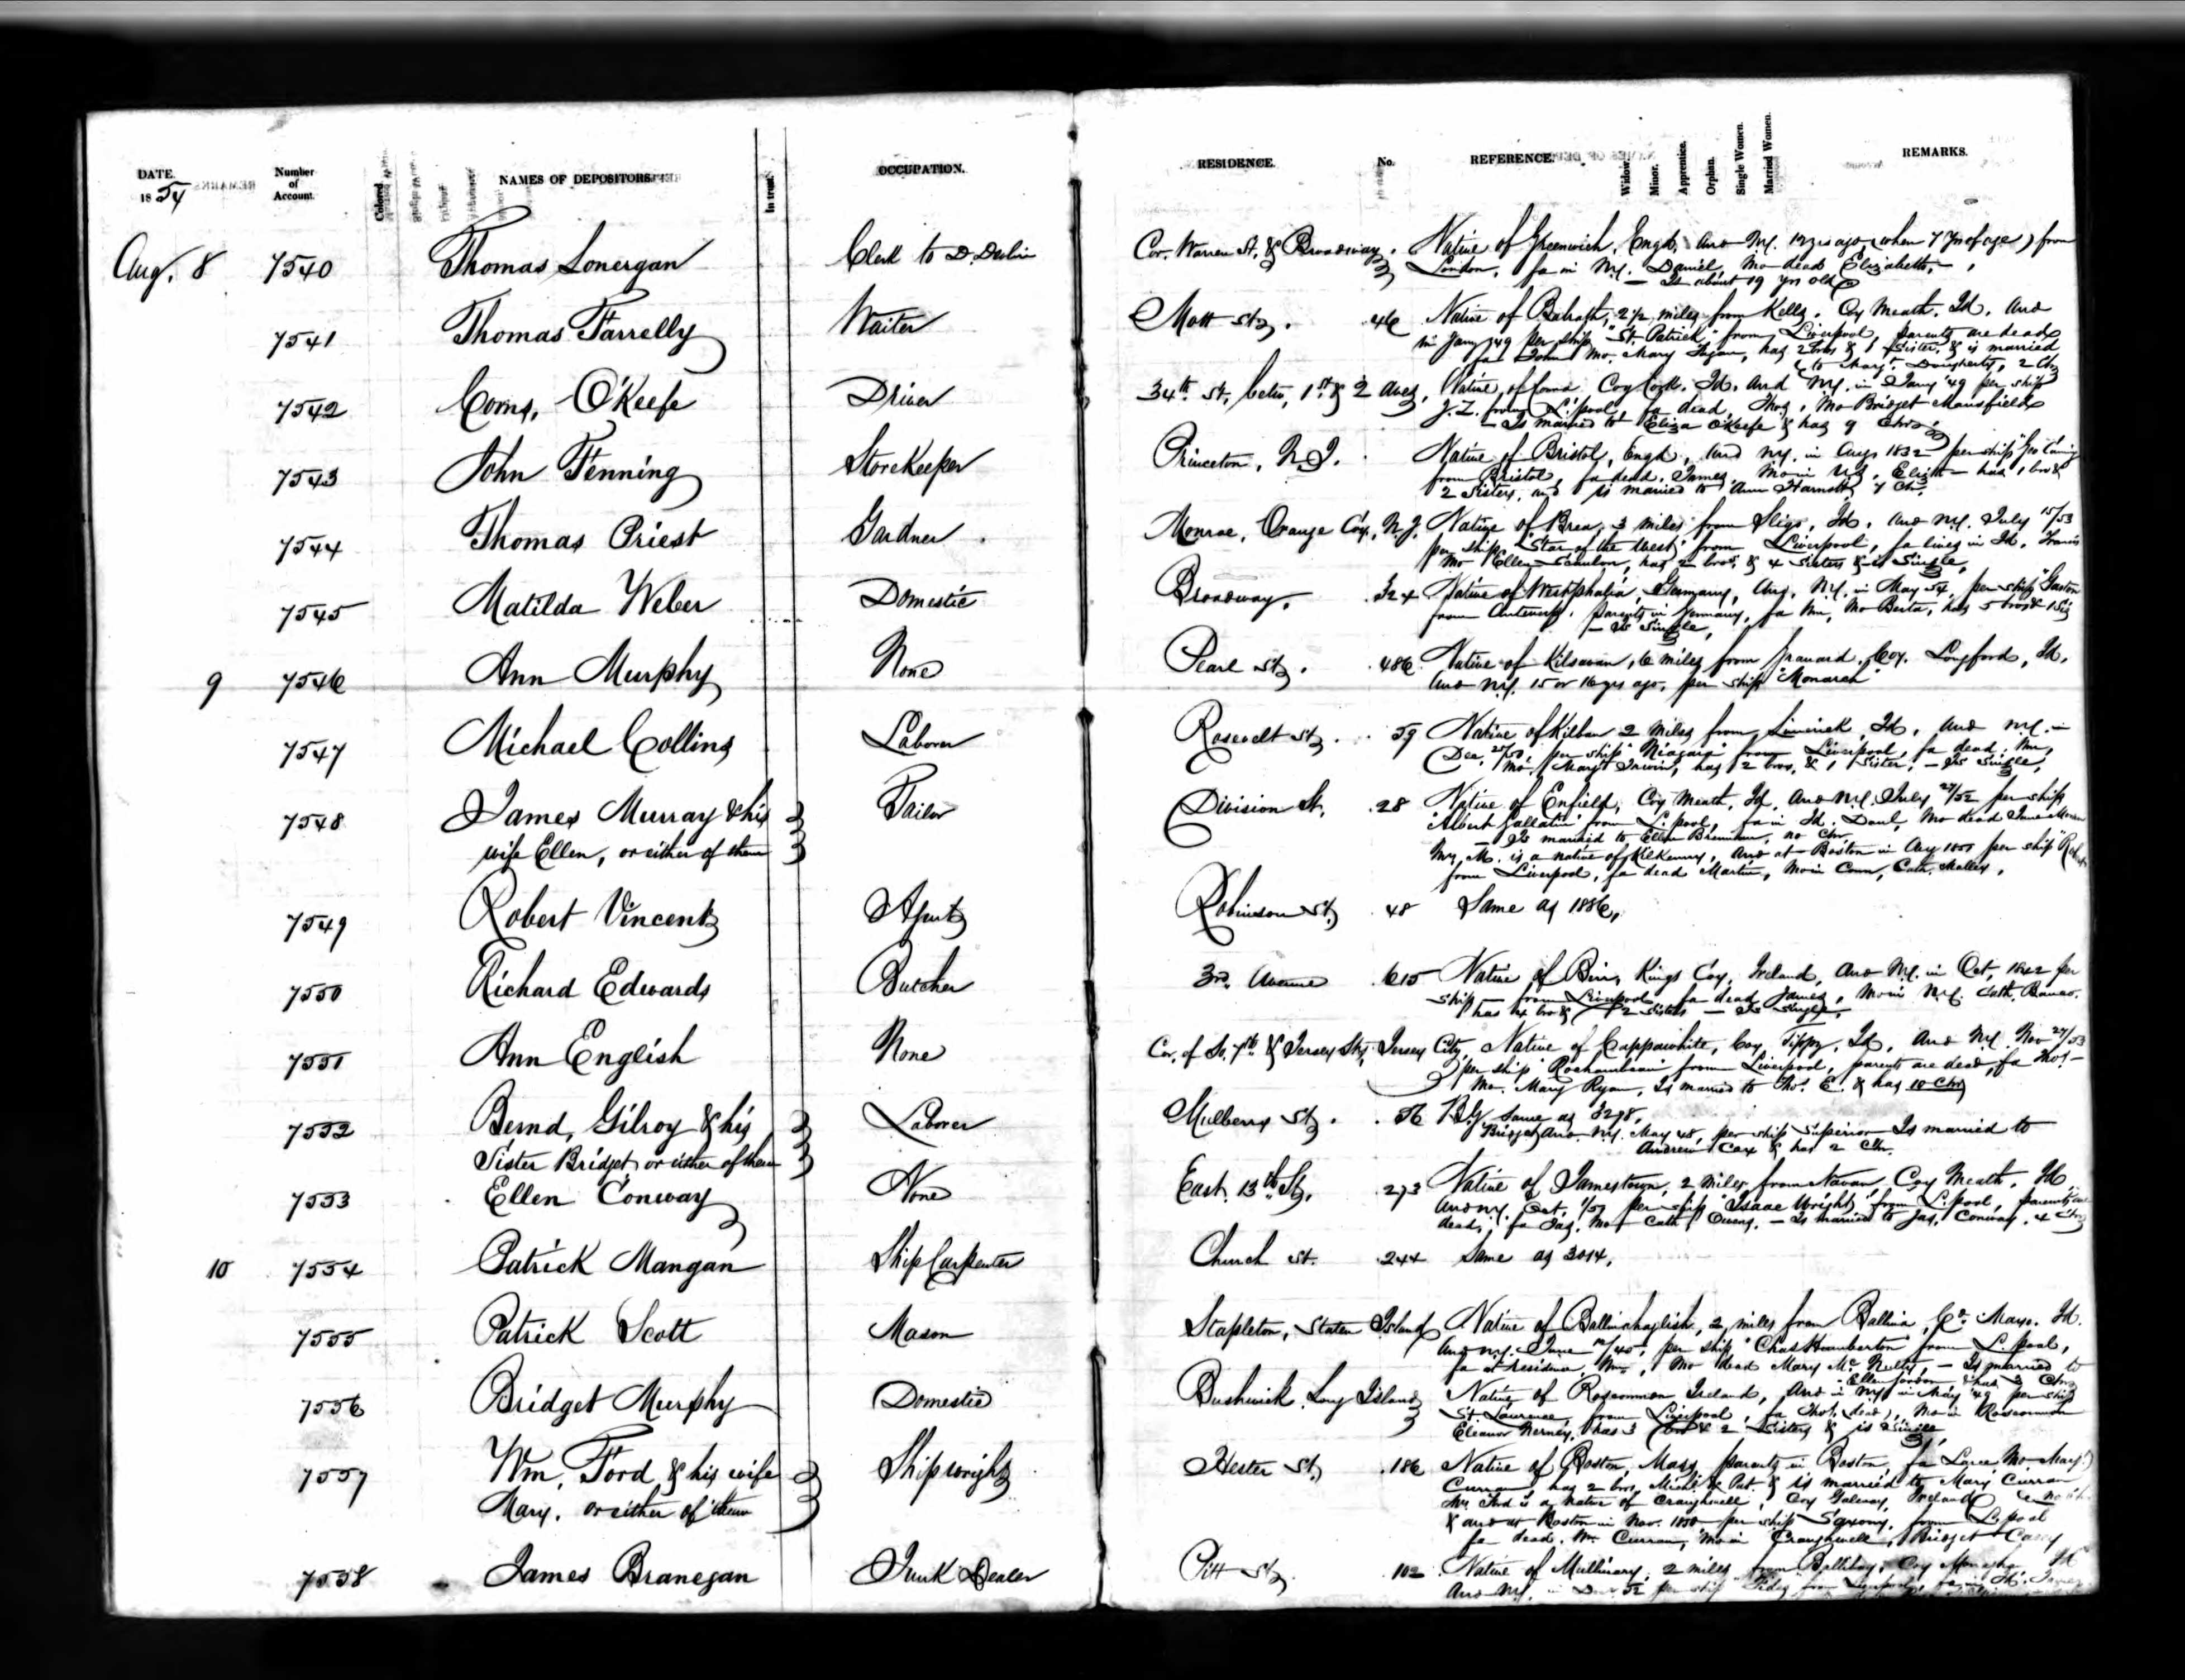 DATE. 1854 Number of Account. Colored. NAMES OF DEPOSITORS. In trust. OCCUPATION. RESIDENCE. No. REFERENCE. Widow. Minor. Apprentice. Orphan. Single Women. Married Women. REMARKS.
Aug. 8 7540 Thomas Lonergan Clerk to D. Devlin Cor. Warren St. & Broadway. Native of Greenwich, Engd. Arrd N.Y. 12 yrs ago (when 7 yrs of age) from
London, fa in N.Y. Daniel, Mo dead Elizabeth,
— Is about 19 yrs old
7541 Thomas Farrelly Waiter Mott St. 46 Native of Balrath, 2½ miles from Kells. Coy Meath. Id. Arrd
in Jany '49 per ship "St. Patrick" from Liverpool, parents are dead
fa John Mo. Mary Fagan, has 2 bros & 1 Sister, & is married
to Margt. Dougherty, 2 Ch.
7542 Corns. O'Keefe Driver 34th St. betw. 1st & 2 Aves, Native of Coy Cork. Id. Arrd N.Y. in Jany '49 per ship
J.Z. from L.pool, fa dead, Thos, Mo Bridget Mansfield
— Is married to Eliza O'Keefe & has 9 Chn.
7543 John Fenning Storekeeper Princeton, N.J. Native of Bristol, Engd, Arrd N.Y. in Augt 1832 per ship "Geo Caning
from Bristol, fa dead, James, Mo in N.Y. Elizth — has 1 bro &
2 Sisters, and is married to Ann 7 Chn.
7544 Thomas Priest Gardner Monroe, Orange Coy., N.J. Native of Brea, 3 miles from Sligo, Id. Arrd N.Y. July 15/53
per ship "Star of the West" from Liverpool, fa lives in Id. Francis
Mo Ellen Scanlon, has 2 bros, & 4 Sisters & is Single,
7545 Matilda Weber Domestic Broadway. 324 Native of Westphalia, Germany, Arrd. N.Y. in May 54, per ship "Gaston
from Antwerp. parents in Germany, fa Wm, Mo Berta, has 5 bros & 1 Sis
— Is Single,
9 7546 Ann Murphy None Pearl St. 486 Native of Kilsavan, 6 miles from Granard. Coy. Longford, Id.
Arrd N.Y. 15 or 16 yrs ago, per ship "Monarch"
7547 Michael Collins Laborer Roosevelt St. 59 Native of Kilban 2 miles from Limerick, Id. Arrd N.Y. in
Dec. 27/50, per ship "Niagara" from Liverpool, fa dead, Wm,
Mo Mary Irwin, has 2 bros, & 1 Sister, — Is Single,
7548 James Murray & his Tailor Division St. 28 Native of Enfield, Coy Meath, Id, Arrd N.Y. July 27/52 per ship
wife Ellen, or either of them "Albert Gallatin" from L.pool, fa in Id. Danl, Mo dead
— Is married to Ellen Brennan, no Chn
Mrs. M. is a native of Kilkenny, Arrd at Boston in Aug 1850 per ship
from Liverpool, fa dead Martin, Mo in Conn, Cath. Malley,
7549 Robert Vincent Agent Robinson St. 48 Same as 1886,
7550 Richard Edwards Butcher 3rd. Avenue 615 Native of Birr, Kings Coy, Ireland, Arrd N.Y. in Oct. 1842 per
ship — from Liverpool, fa dead James, Mo in N.Y. Cath.
has 4 bro & 2 Sisters — Is Single,
7551 Ann English None Cor. of So. 7th & Jersey Sts, Jersey City, Native of Cappawhite, Coy Tippy, Id. Arrd N.Y. Nov 27/53
per ship "Rochambeau" from Liverpool, parents are dead, fa Thos —
Mo. Mary Ryan, Is married to Thos. E. & has 10 Chn
7552 Bernd, Gilroy & his Laborer Mulberry St. 56 B.G. same as 3298,
Sister Bridget or either of them Bridget Arrd. N.Y. May 48, per ship Superior Is married to
Andrew Cox & has 2 Chn.
7553 Ellen Conway None East 13th St. 273 Native of Jamestown, 2 miles from Navan Coy Meath, Id,
Arrd N.Y. Oct. 1/51 per ship "Isaac Wright," from L.pool, parents are
dead, fa Jas, Mo Cath Owens, — Is married to Jas. Conway, 4 Chn
10 7554 Patrick Mangan Ship Carpenter Church St. 244 Same as 3014,
7555 Patrick Scott Mason Stapleton, Staten Island Native of Ballinahaglish, 2 miles from Ballina, Co. Mayo. Id.
Arrd N.Y. June per ship "Chas Humberton" from L.pool,
fa at residence, Wm, Mo dead Mary McNulty, — Is married to
Ellen Jordon & has 3 Chn
7556 Bridget Murphy Domestic Bushwick Long Island Native of Roscommon Ireland, Arrd in N.Y. in May '49 per ship
St. Laurence, from Liverpool, fa Thos. (dead), Mo in Roscommon
Eleanor Nerney, has 3 bro & 2 Sisters & is Single
7557 Wm, Ford & his wife Shipwright Hester St, 186 Native of Boston, Mass, parents in Boston, fa Mo Mary
Mary, or either of them Curran has 2 bros, Michl & Pat. & is married to Mary Curran
Mrs. Ford is a native of Craughwell, Coy Galway, Ireland
& arrd at Boston in Nov. 1850 per ship Saxony, from L.pool
fa dead. Wm Curran, Mo in Craughwell, Bridget Casey
7558 James Branegan Junk Dealer Pitt St. 102 Native of Mullinary, 2 miles from Ballibay, Coy Monaghan Id
Arrd N.Y. in per ship